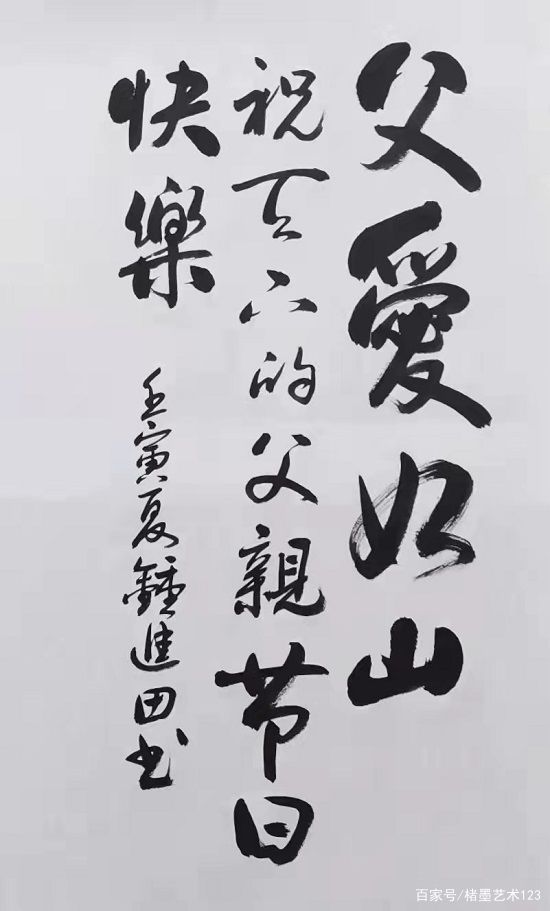 父愛如山
祝天下的父親节日
快樂
壬寅夏鍾進田书
百家号/楮墨艺术123